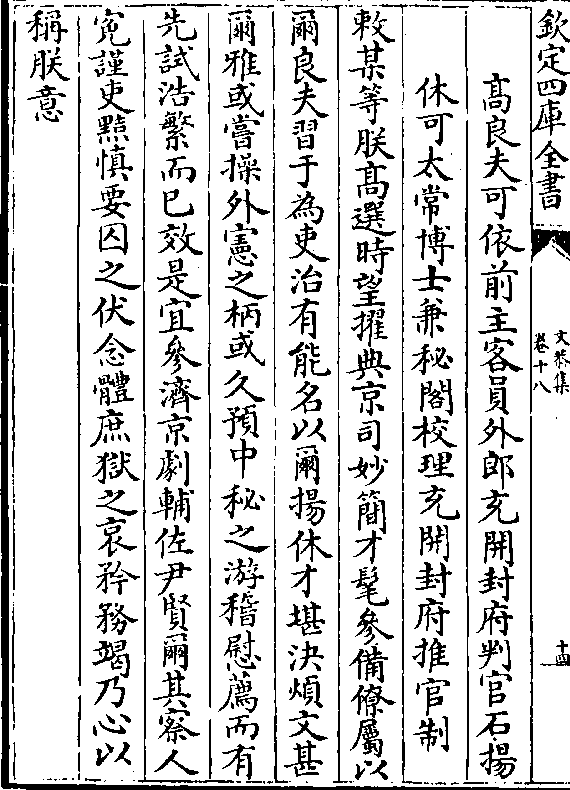 欽定四庫全書
文恭集
卷十八
十四
高良夫可依前主客員外郎充開封府判官石揚
休可太常博士兼秘閣校理充開封府推官制
敕某等朕高選時望擢典京司妙簡才髦參備僚屬以
爾良夫習于為吏治有能名以爾揚休才堪決煩文甚
爾雅或嘗操外憲之柄或久預中秘之游稽慰薦而有
先試浩繁而已效是宜參濟京劇輔佐尹賢爾其察人
寃謹吏黠慎要囚之伏念體庶獄之哀矜務竭乃心以
稱朕意